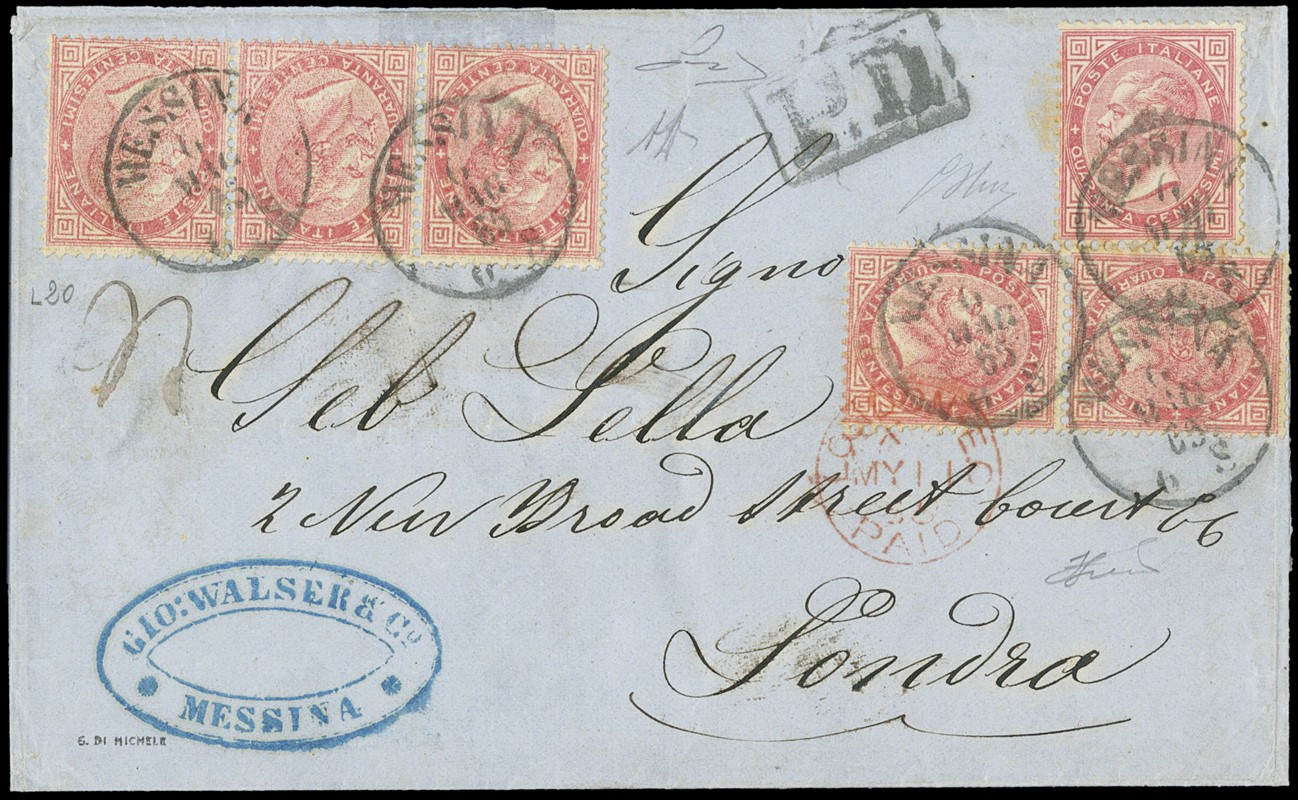 POSTE ITALIANE
QUARANTA CENTESIMI
POSTE ITALIANE
QUARANTA CENTESIMI
POSTE ITALIANE
QUARANTA CENTESIMI
MESSINA
MAG
65
MESSINA
MAG
65
P.D.
POSTE ITALIANE
QUARANTA CENTESIMI
MESSINA
POSTE ITALIANE
QUARANTA CENTESIMI
MESSINA
MAG
65
POSTE ITALIANE
QUARANTA CENTESIMI
MESSINA
L20
Signo
Geb Lella
2 New Broad Street Court
Londra
MY 11
PAID
GIO: WALSER & Co
MESSINA
G. DI MICHELE